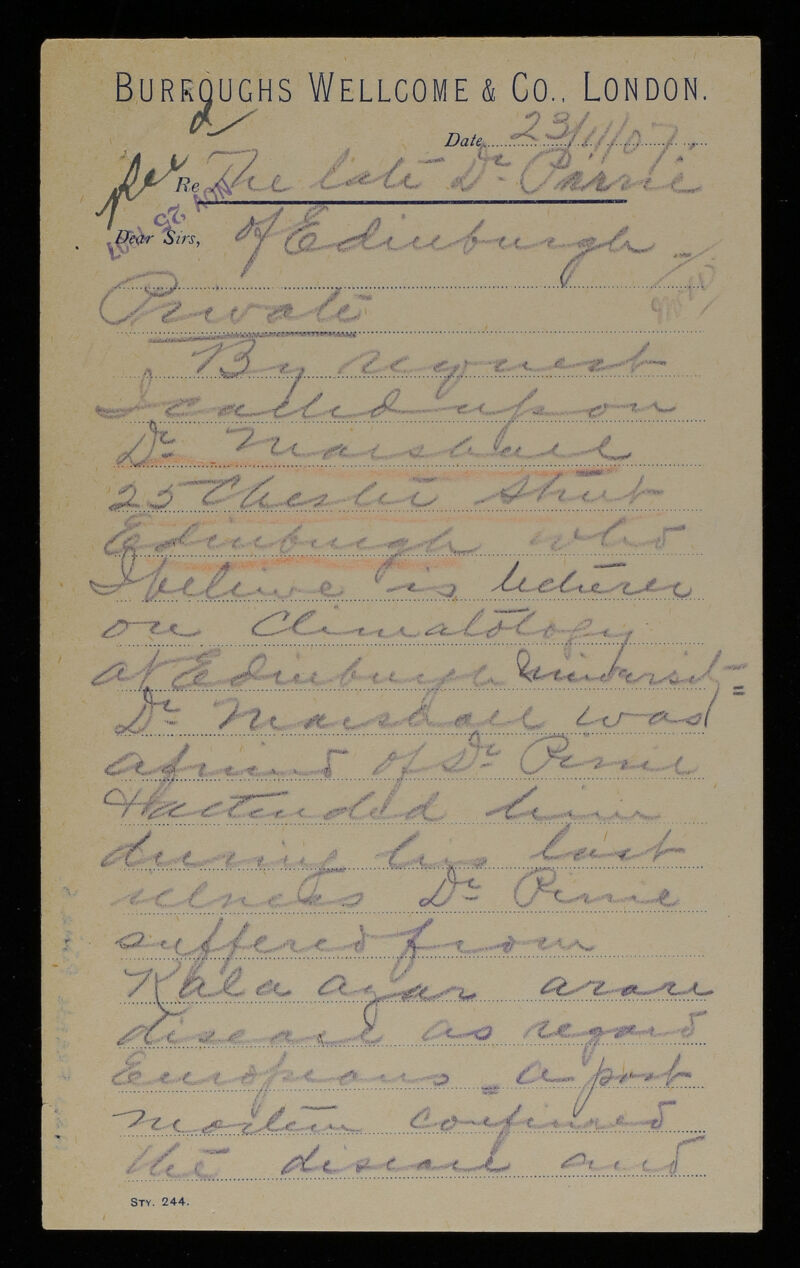 BURROUGHS WELLCOME & CO., LONDON.
Date 23/11/07.
Rec d
Re The late Dr. Pirrie
NOV 25 1907
Dear Sirs, of Edinburgh -
Private
By request
I called upon
Dr. Marshall
25 Chester Street
Edinburgh who
I believe is lecturer
on Climatology
at Edinburgh University =
Dr. Marshall was
a friend of Dr. Pirrie
& attended him
during his last
illness Dr. Pirrie
suffered from
Kala azar a rare
disease as regard
Europeans = a post
mortem confirmed
the disease and
STY. 244.